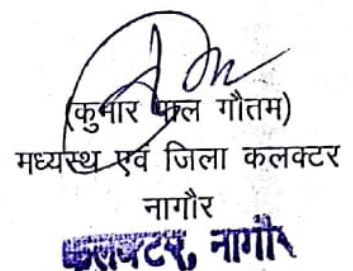 (कुमार पाल गौतम)
मध्यस्थ एवं जिला कलक्टर
नागौर
कलक्टर, नागौर